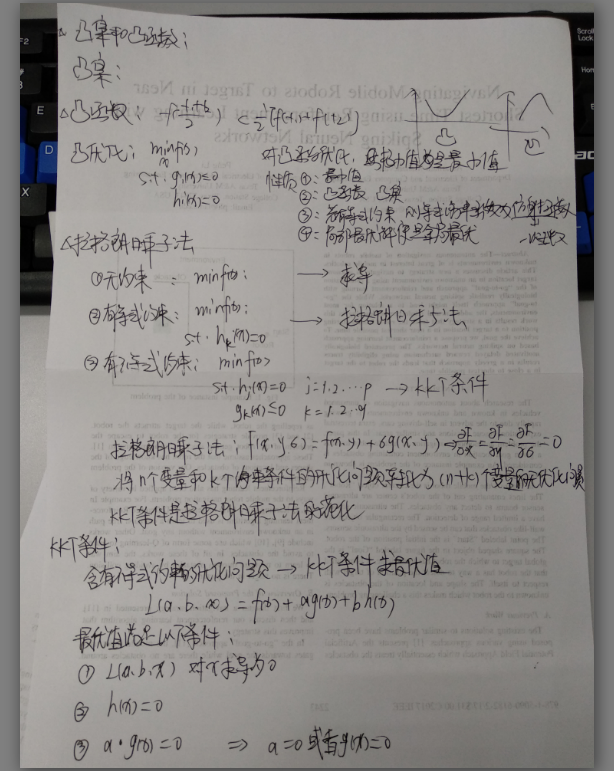 △ 凸集和凸函数:
凸集:
△ 凸函数: f(\frac{x_1+x_2}{2}) < \frac{1}{2}(f(x_1)+f(x_2)) 凸 凹
凸优化: min f(x) 对凸函数优化, 值总是最小值
s.t. g_i(x)≤0 性质 ①: 最小值
h_i(x)=0 ②: 凸函数 凸集
③: 若有等式约束 则等式约束函数为仿射函数
④: 局部最优解便是全局最优 一次函数
△ 拉格朗日乘子法
① 无约束: min f(x); → 求导
② 有等式约束: min f(x); → 拉格朗日乘子法
s.t. h_k(x)=0
② 有不等式约束: min f(x)
s.t. h_j(x)=0 j=1.2...p → KKT条件
g_k(x)≤0 k=1.2..q
拉格朗日乘子法: f(x.y.6)=f(x.y)+6g(x.y) → \frac{∂F}{∂x}=\frac{∂F}{∂y}=\frac{∂F}{∂6}=0
将n个变量和k个约束条件的优化问题转化为(n+k)个变量的无优化问题
KKT条件是拉格朗日乘子法的泛化
KKT条件:
含有不等式约束的优化问题 → KKT条件求最优值
L(a.b.x)=f(x)+ag(x)+bh(x)
最优值满足以下条件:
① L(a.b.x) 对x求导为0
② h(x)=0
③ a·g(x)=0 ⇒ a=0或者g(x)=0